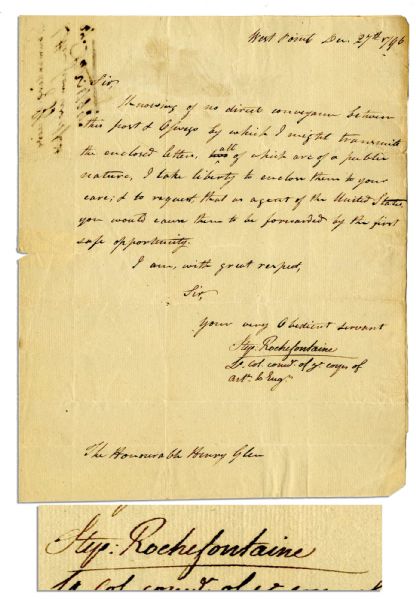 West Point Dec. 27th 1796
Sir,
Knowing of no direct conveyance between
this post & Oswego by which I might transmit
the enclosed letters, all of which are of a public
nature, I take liberty to enclose them to your
care; & to request that as agent of the United States
you would cause them to be forwarded by the first
safe opportunity.
I am, with great respect,
Sir,
Your very Obedient servant
Step. Rochefontaine
Lt. Col. comdt. of ye corps of
arty. & Engrs.
The Honourable Henry Glen
Step. Rochefontaine
Lt. Col. comdt. of ye